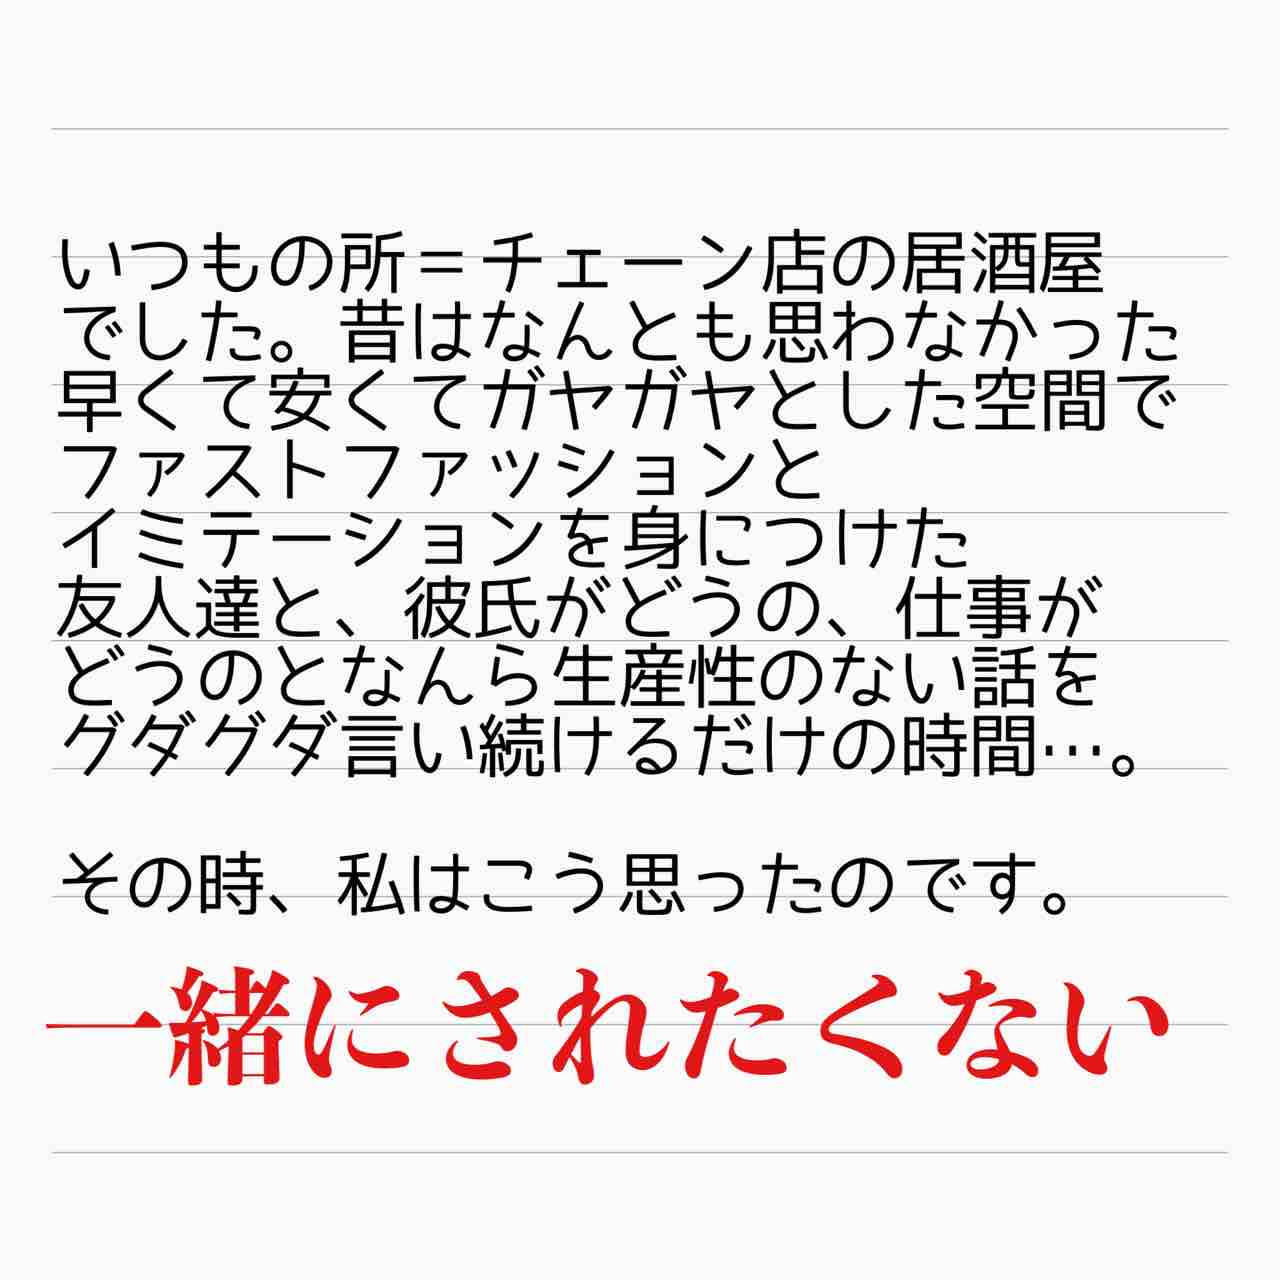 いつもの所＝チェーン店の居酒屋
でした。昔はなんとも思わなかった
早くて安くてガヤガヤとした空間で
ファストファッションと
イミテーションを身につけた
友人達と、彼氏がどうの、仕事が
どうのとなんら生産性のない話を
グダグダ言い続けるだけの時間…。
その時、私はこう思ったのです。
一緒にされたくない